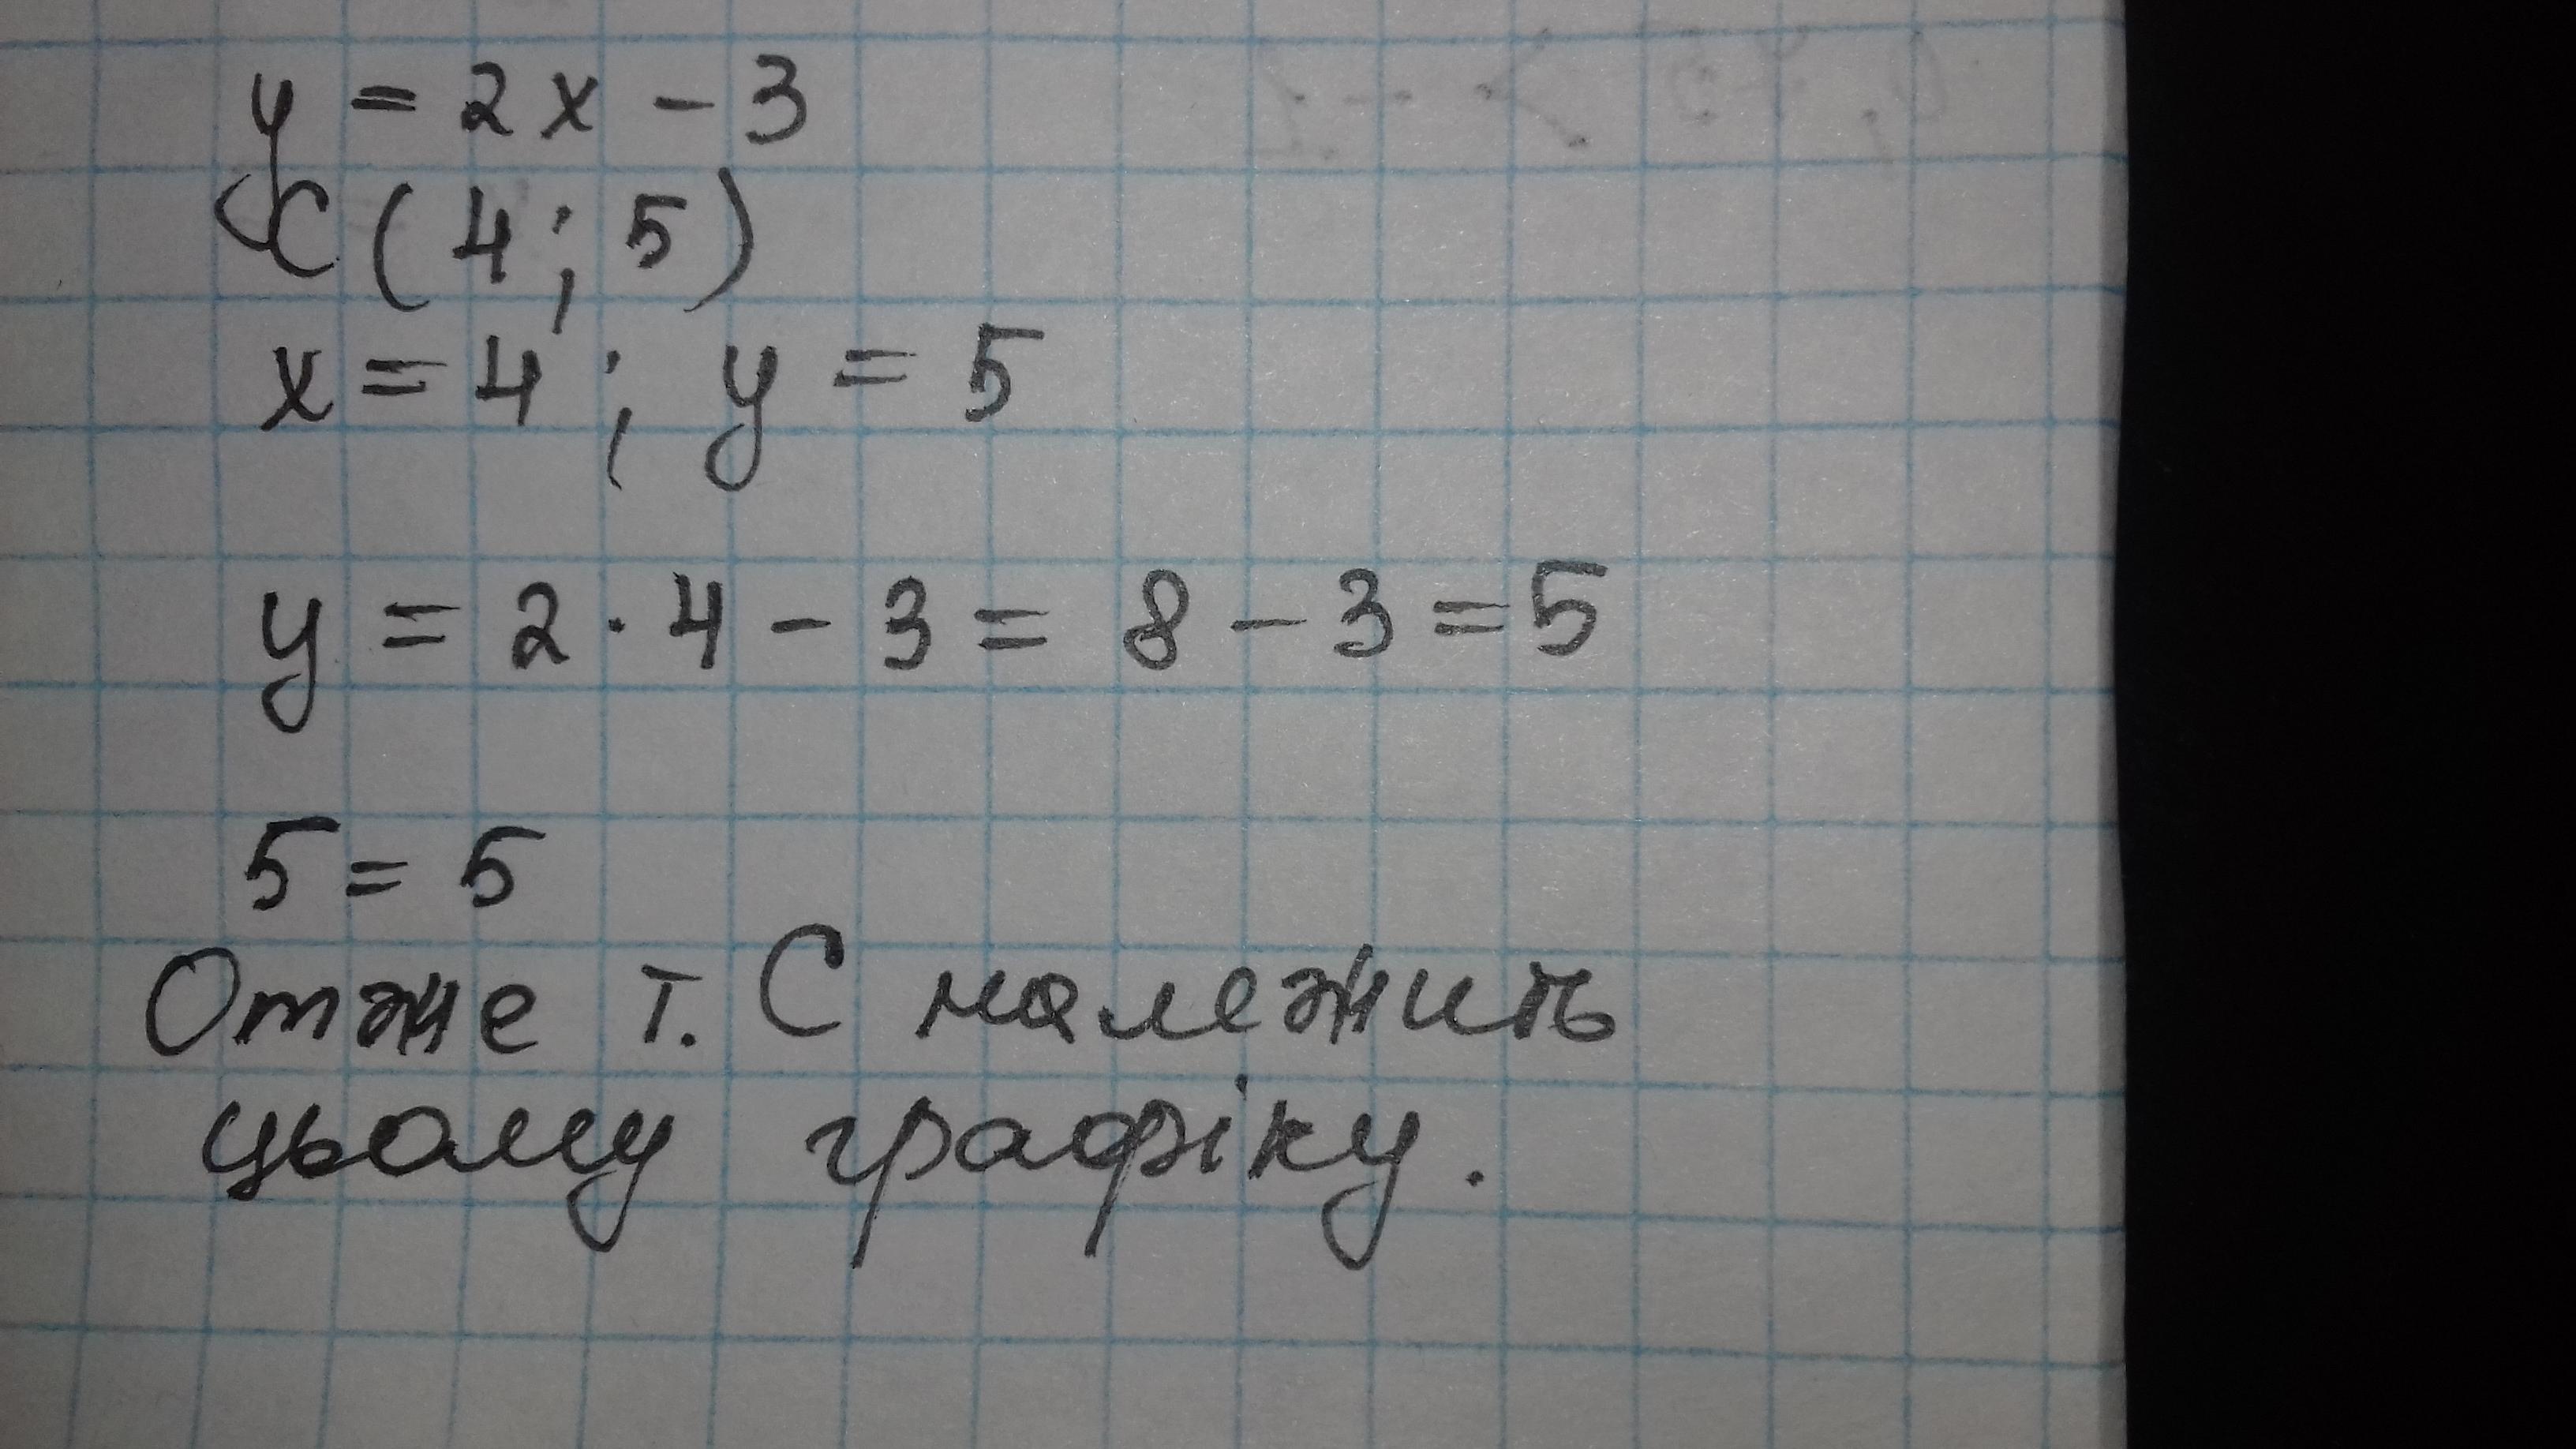 y = 2x - 3
C (4; 5)
x = 4; y = 5
y = 2 · 4 - 3 = 8 - 3 = 5
5 = 5
Отже т. С належить
цьому графіку.